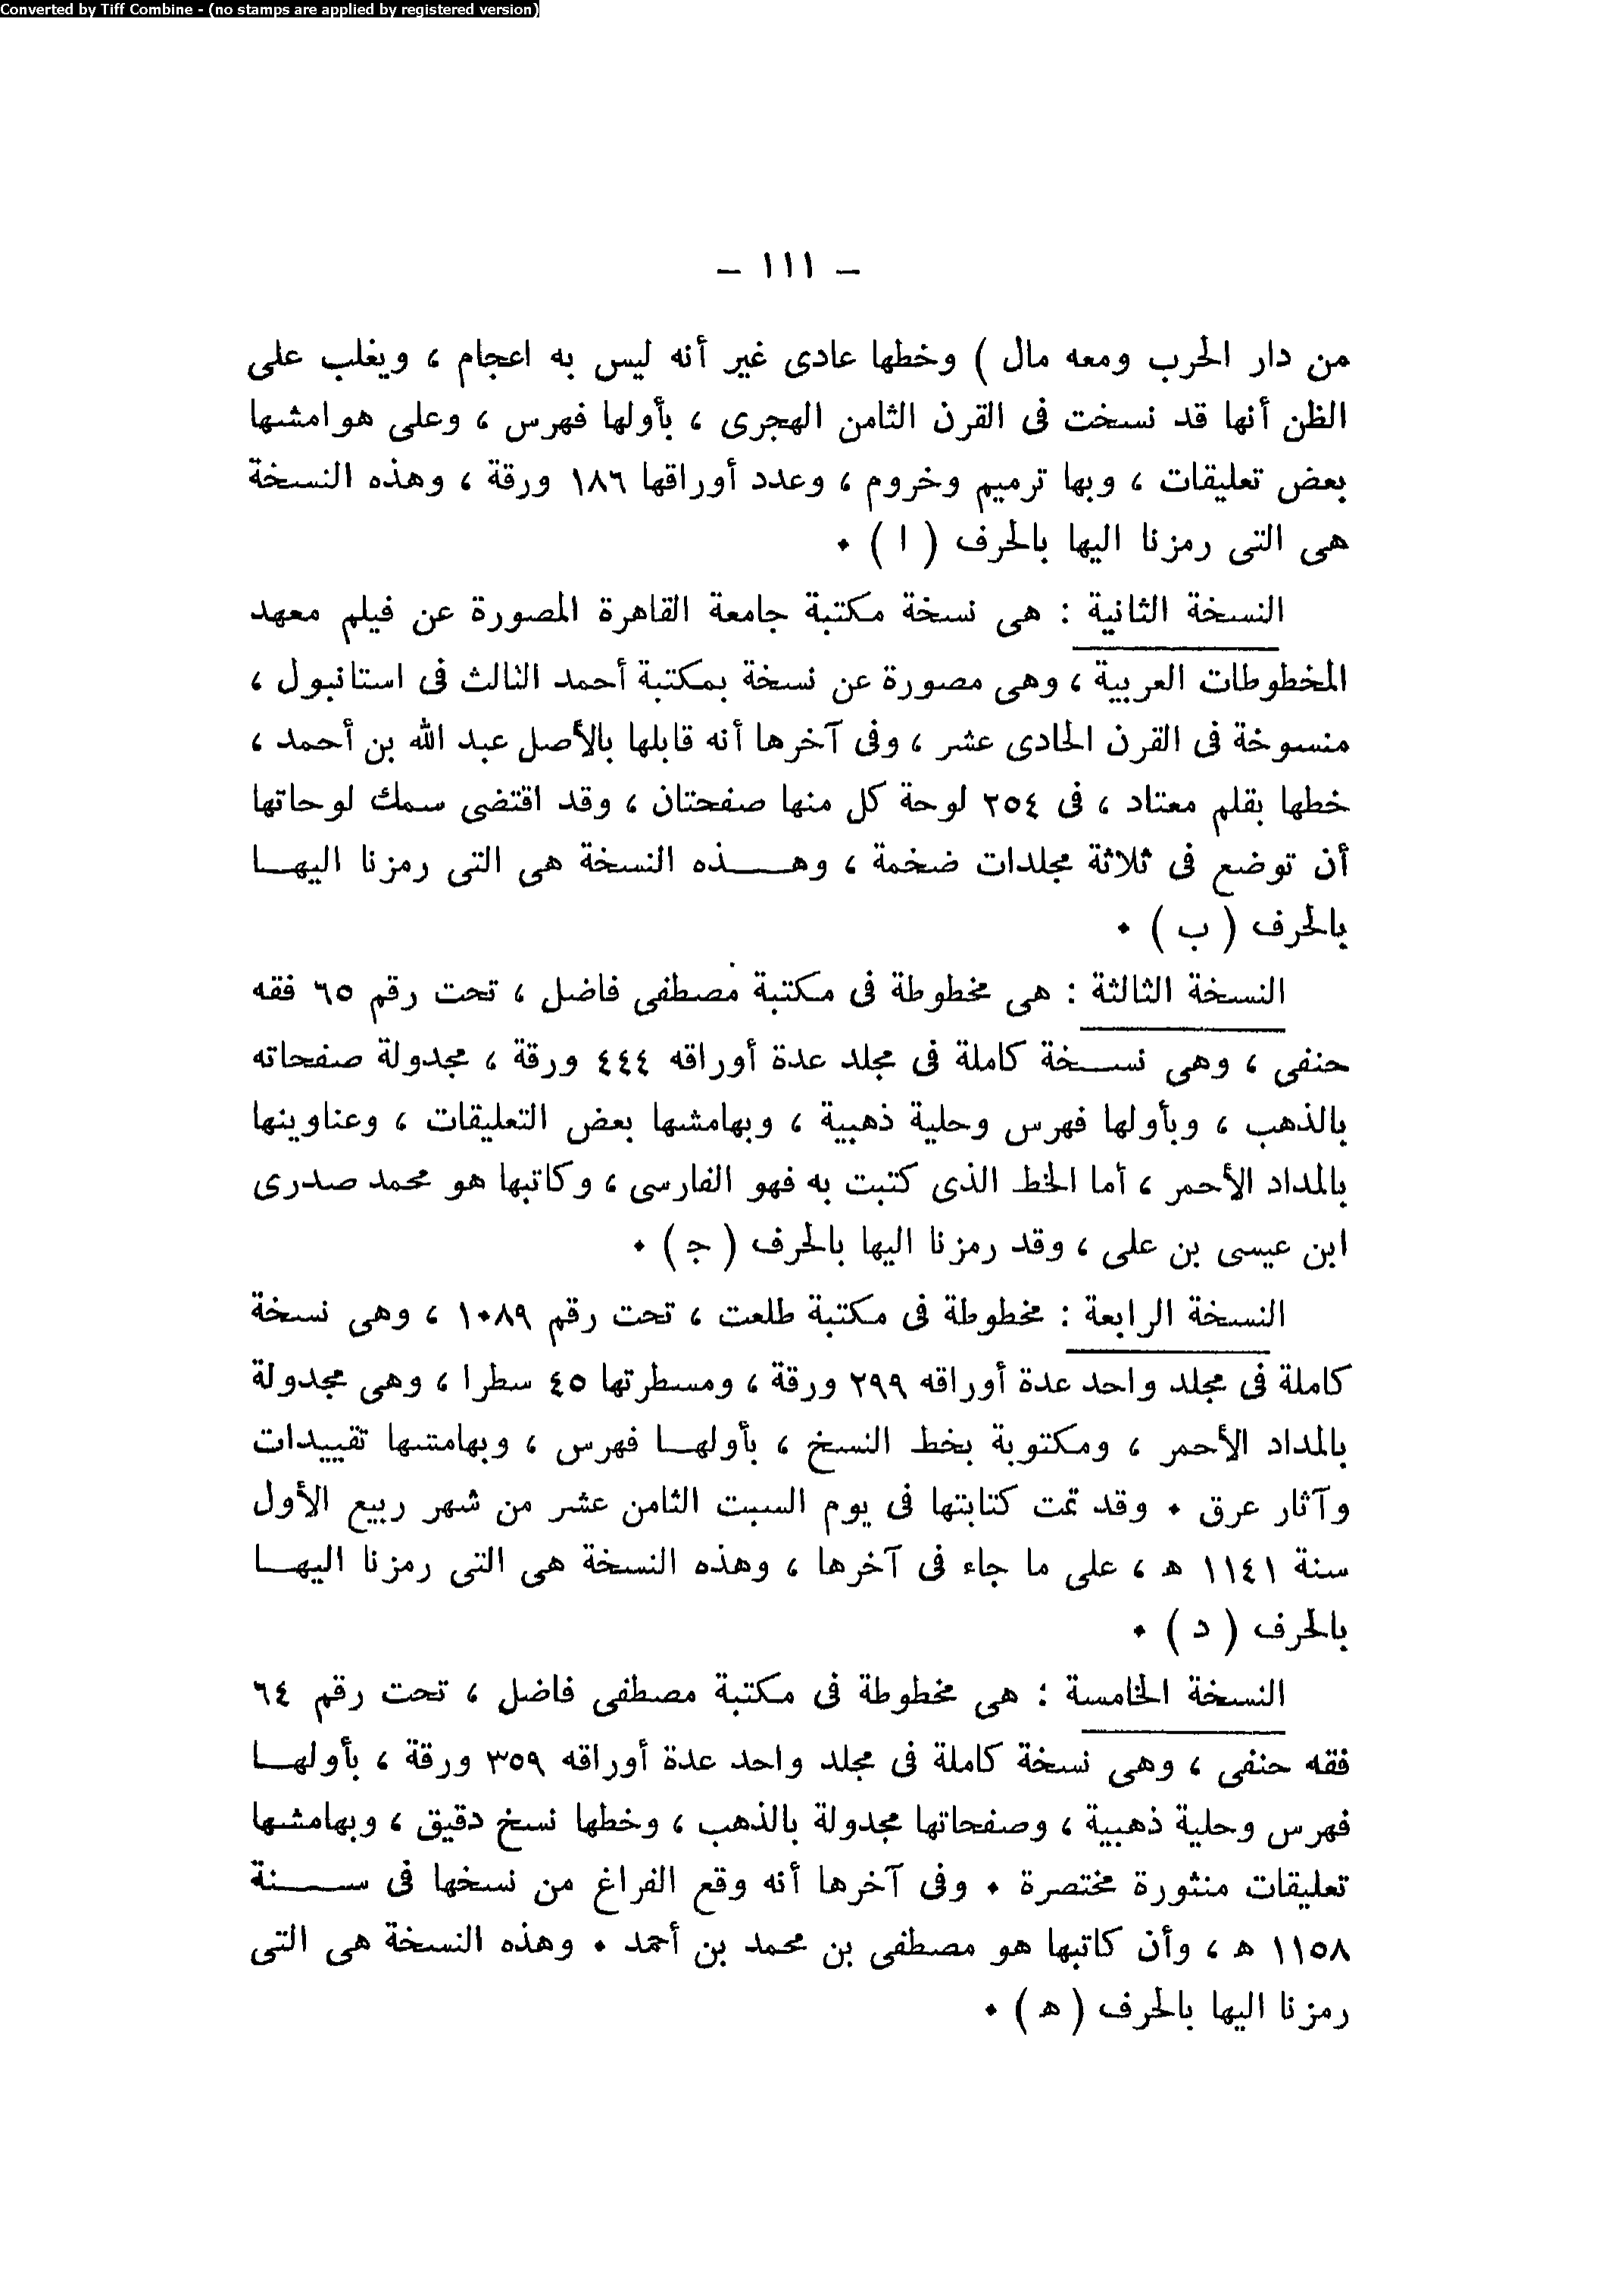 Converted by Tiff Combine - (no stamps are applied by registered version)
— ١١١ —
من دار الحرب ومعه مال ) وخطها عادى غير أنه ليس به اعجام ، ويغلب على
الظن أنها قد نسخت فى القرن الثامن الهجرى ، بأولها فهرس ، وعلى هوامشها
بعض تعليقات ، وبها ترميم وخروم ، وعدد أوراقها ١٨٦ ورقة ، وهذه النسخة
هى التى رمزنا اليها بالحرف ( ا ) ٠
النسخة الثانية : هى نسخة مكتبة جامعة القاهرة المصورة عن فيلم معهد
المخطوطات العربية ، وهى مصورة عن نسخة بمكتبة أحمد الثالث فى استانبول ،
منسوخة فى القرن الحادى عشر ، وفى آخرها أنه قابلها بالأصل عبد الله بن أحمد ،
خطها بقلم معتاد ، فى ٢٥٤ لوحة كل منها صفحتان ، وقد اقتضى سمك لوحاتها
أن توضع فى ثلاثة مجلدات ضخمة ، وهـــذه النسخة هى التى رمزنا اليهـا
بالحرف ( ب ) ٠
النسخة الثالثة : هى مخطوطة فى مكتبة مصطفى فاضل ، تحت رقم ٦٥ فقه
حنفى ، وهى نســخة كاملة فى مجلد عدة أوراقه ٤٤٤ ورقة ، مجدولة صفحاته
بالذهب ، وبأولها فهرس وحلية ذهبية ، وبهامشها بعض التعليقات ، وعناوينها
بالمداد الأحمر ، أما الخط الذى كتبت به فهو الفارسى ، وكاتبها هو محمد صدرى
ابن عيسى بن على ، وقد رمزنا اليها بالحرف ( ج ) ٠
النسخة الرابعة : مخطوطة فى مكتبة طلعت ، تحت رقم ١٠٨٩ ، وهى نسخة
كاملة فى مجلد واحد عدة أوراقه ٢٩٩ ورقة ، ومسطرتها ٤٥ سطرا ، وهى مجدولة
بالمداد الأحمر ، ومكتوبة بخط النسخ ، بأولهـا فهرس ، وبهامشها تقييدات
وآثار عرق ٠ وقد تمت كتابتها فى يوم السبت الثامن عشر من شهر ربيع الأول
سنة ١١٤١ هـ ، على ما جاء فى آخرها ، وهذه النسخة هى التى رمزنا اليهـا
بالحرف ( د ) ٠
النسخة الخامسة : هى مخطوطة فى مكتبة مصطفى فاضل ، تحت رقم ٦٤
فقه حنفى ، وهى نسخة كاملة فى مجلد واحد عدة أوراقه ٣٥٩ ورقة ، بأولهـا
فهرس وحلية ذهبية ، وصفحاتها مجدولة بالذهب ، وخطها نسخ دقيق ، وبهامشها
تعليقات منثورة مختصرة ٠ وفى آخرها أنه وقع الفراغ من نسخها فى ســـنة
١١٥٨ هـ ، وأن كاتبها هو مصطفى بن محمد بن أحمد ٠ وهذه النسخة هى التى
رمزنا اليها بالحرف ( هـ ) ٠